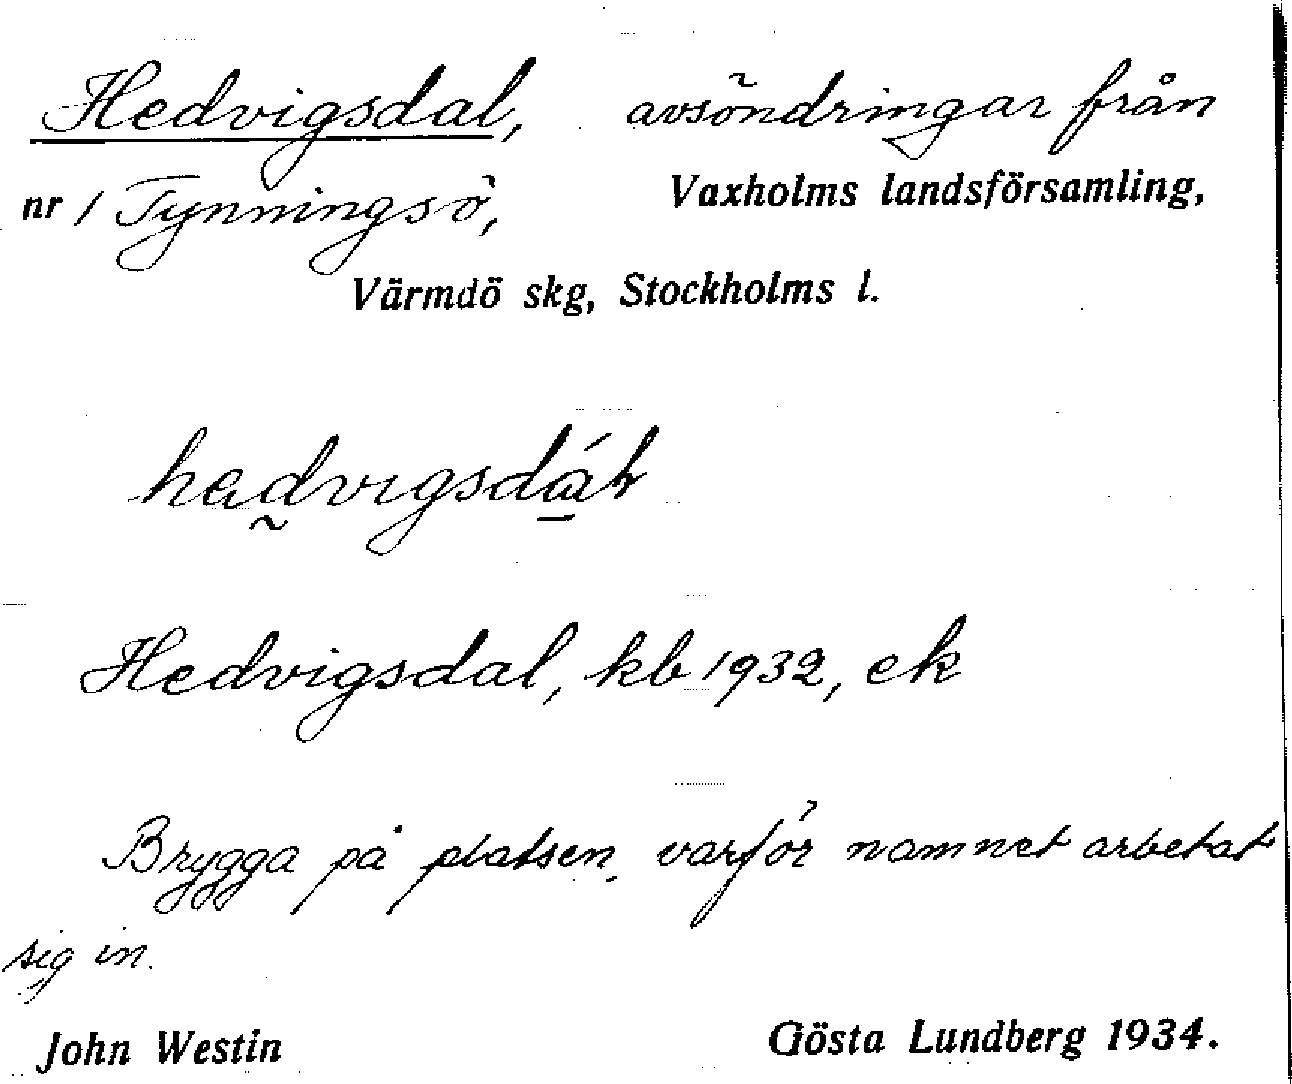 Hedvigsdal, avsöndringar från
nr 1 Tynningsö, Vaxholms landsförsamling,
Värmdö skg, Stockholms l.
Hedvigsdal, kb 1932, ek
Brygga på platsen, varför namnet arbetat
sig in.
John Westin Gösta Lundberg 1934.